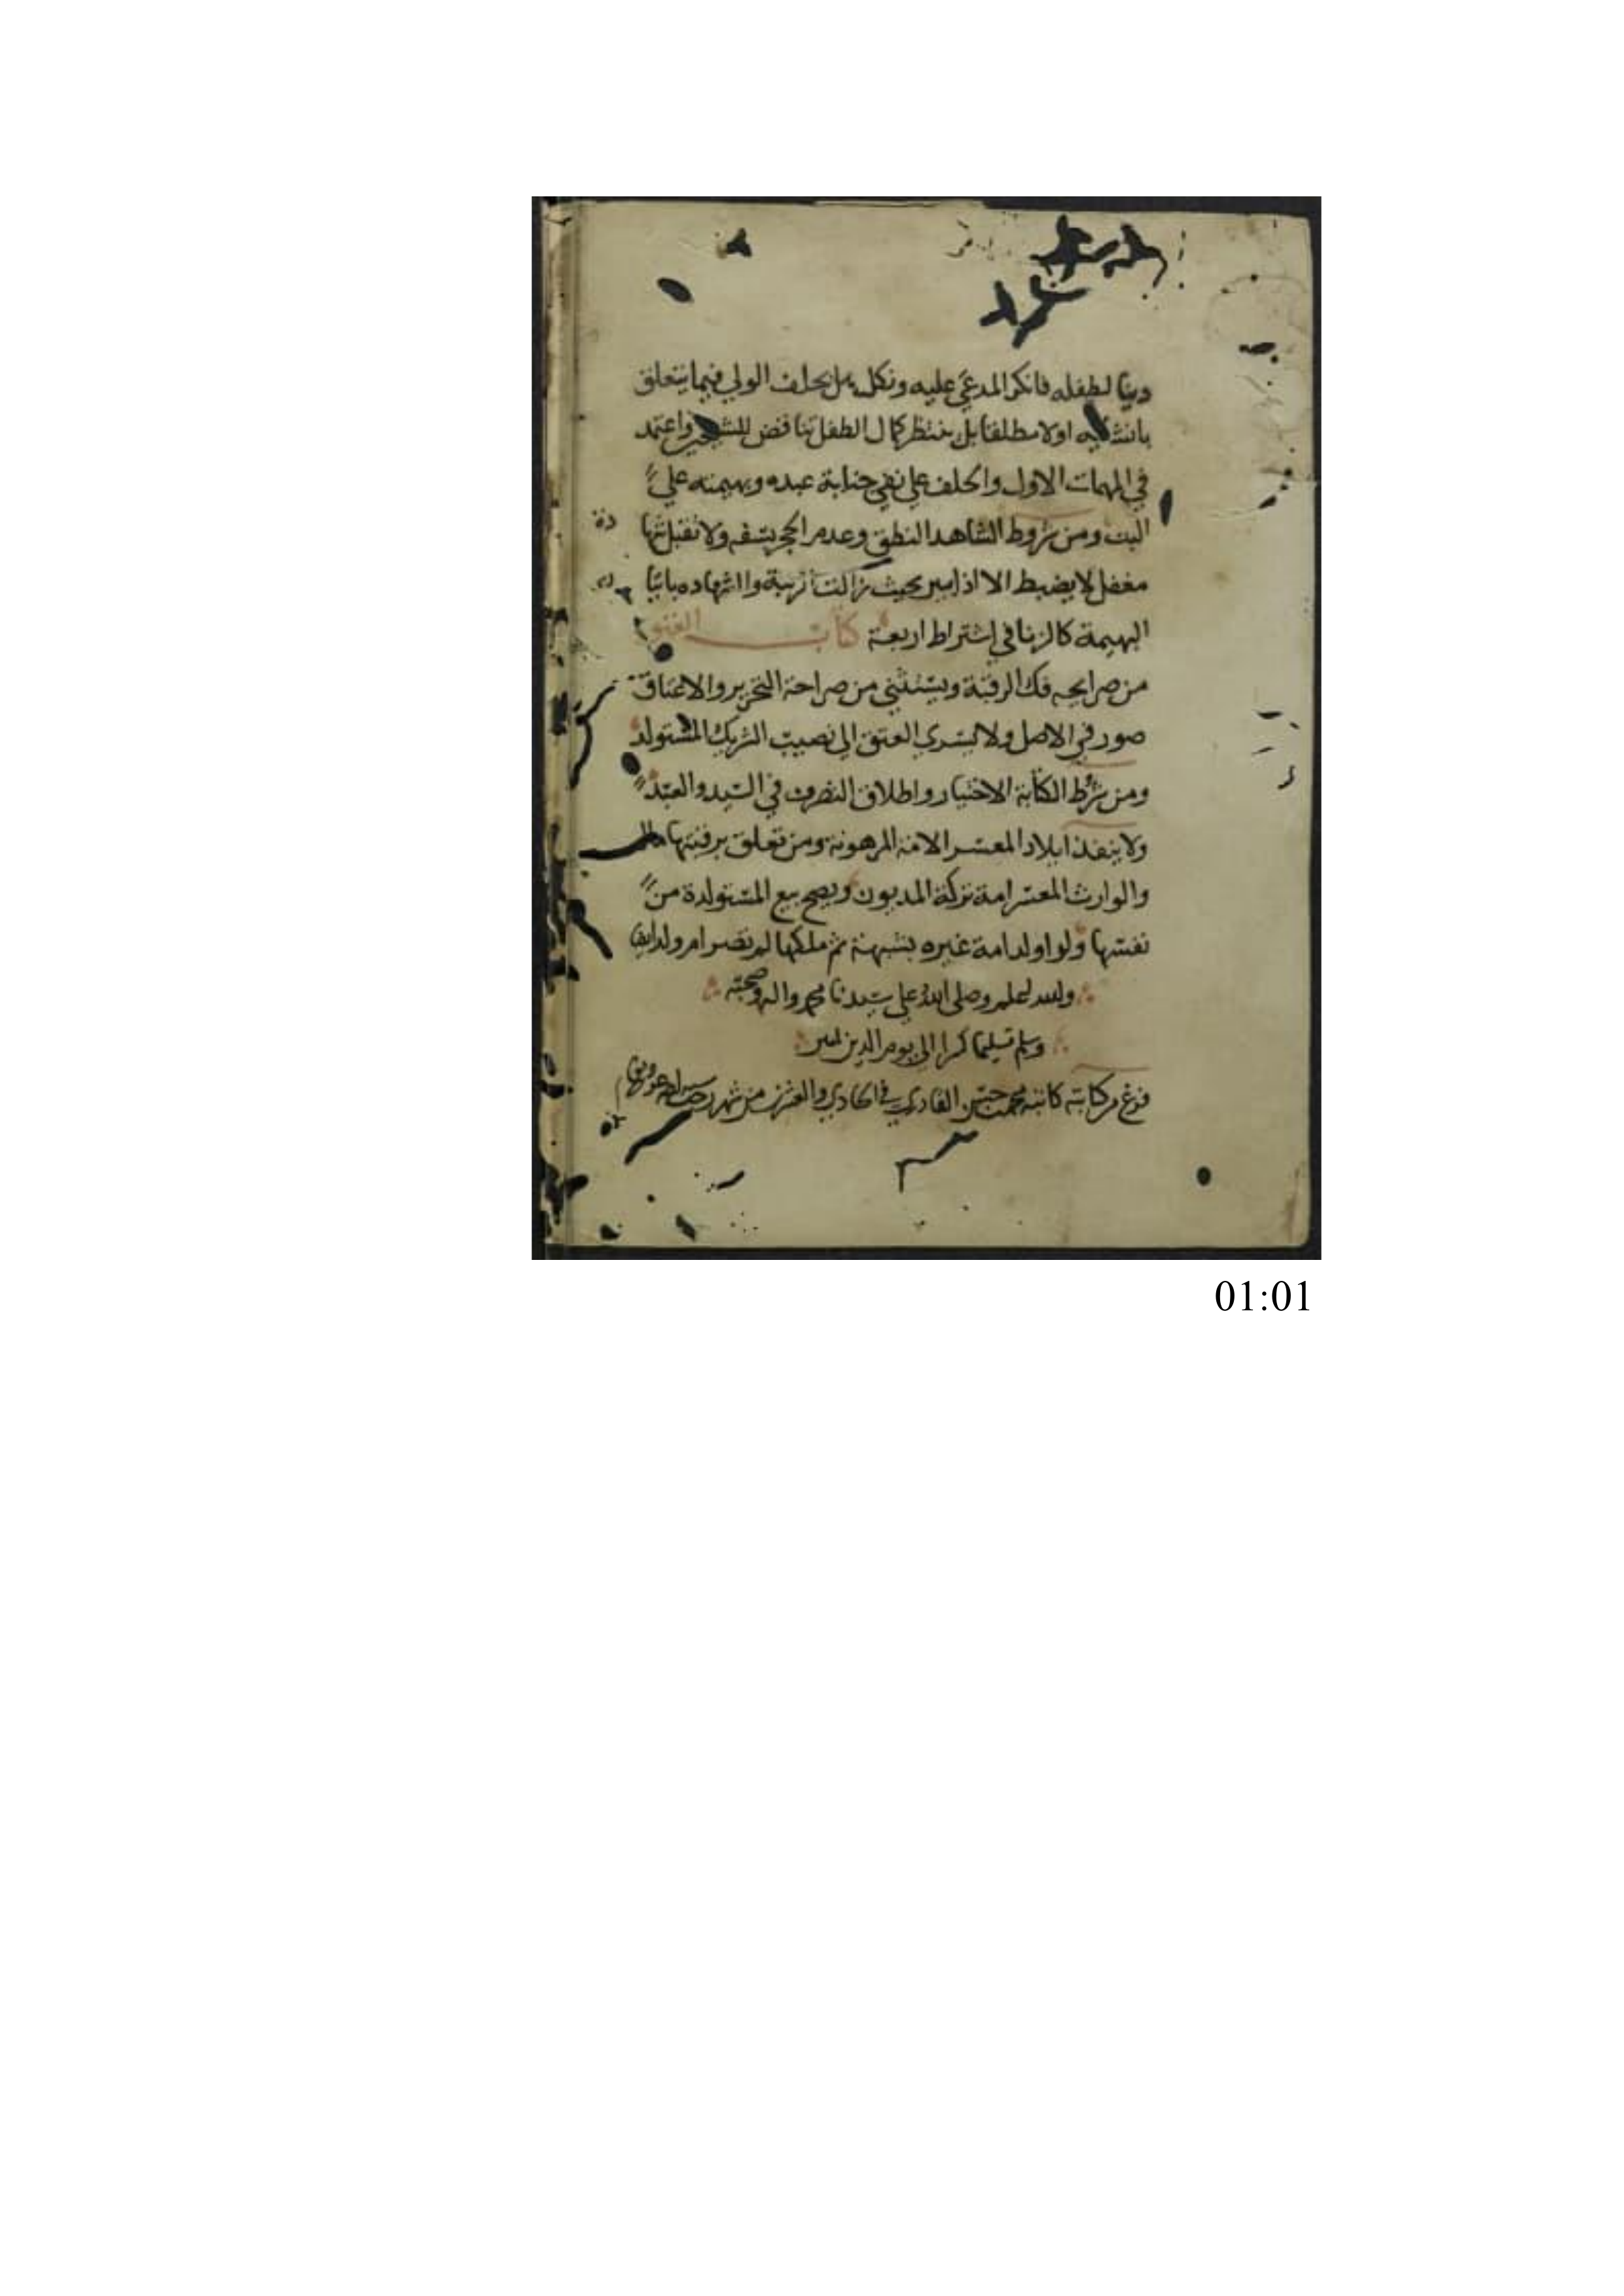 دينا لطفله فانكر المدعى عليه ونكل هل يحلف الولي فيما يتعلق
اولا مطلقا بل ينتظر كمال الطفل تناقض واعتمد
في المهمات الاول والحلف علي نفي جناية عبده وبهيمته علي
البت ومن شروط الشاهد النطق وعدم الحجر بسفه ولا تقبل شها
دة
مغفل لا يضبط الا اذا بحيث زالت الريبة والشهادة باتيان
البهيمة كالزنا في اشتراط اربعة كتاب العتق
من صرايحه فك الرقبة ويستثني من صراحة التحرير والاعتاق
صور في الاصل ولا يسري العتق الي نصيب الشريك المستولد
ومن شرط الكتابة الاختيار واطلاق التصرف في السيد والعبد
ولا ينفذ ايلاد المعسر الامة المرهونة ومن تعلق برقبتها
والوارث المعسر امة تركة المديون ويصح بيع المستولدة من
نفسها ولو اولد امة غيره بشبهة ثم ملكها لم تصر ام ولد ايضا
والله اعلم وصلى الله علي سيدنا محمد واله وصحبه
وسلم تسليما كثيرا الى يوم الدين امين
فرغ من كتابته كاتبه محمد حسين القادري في الحادي والعشرين من شهر رجب
01:01